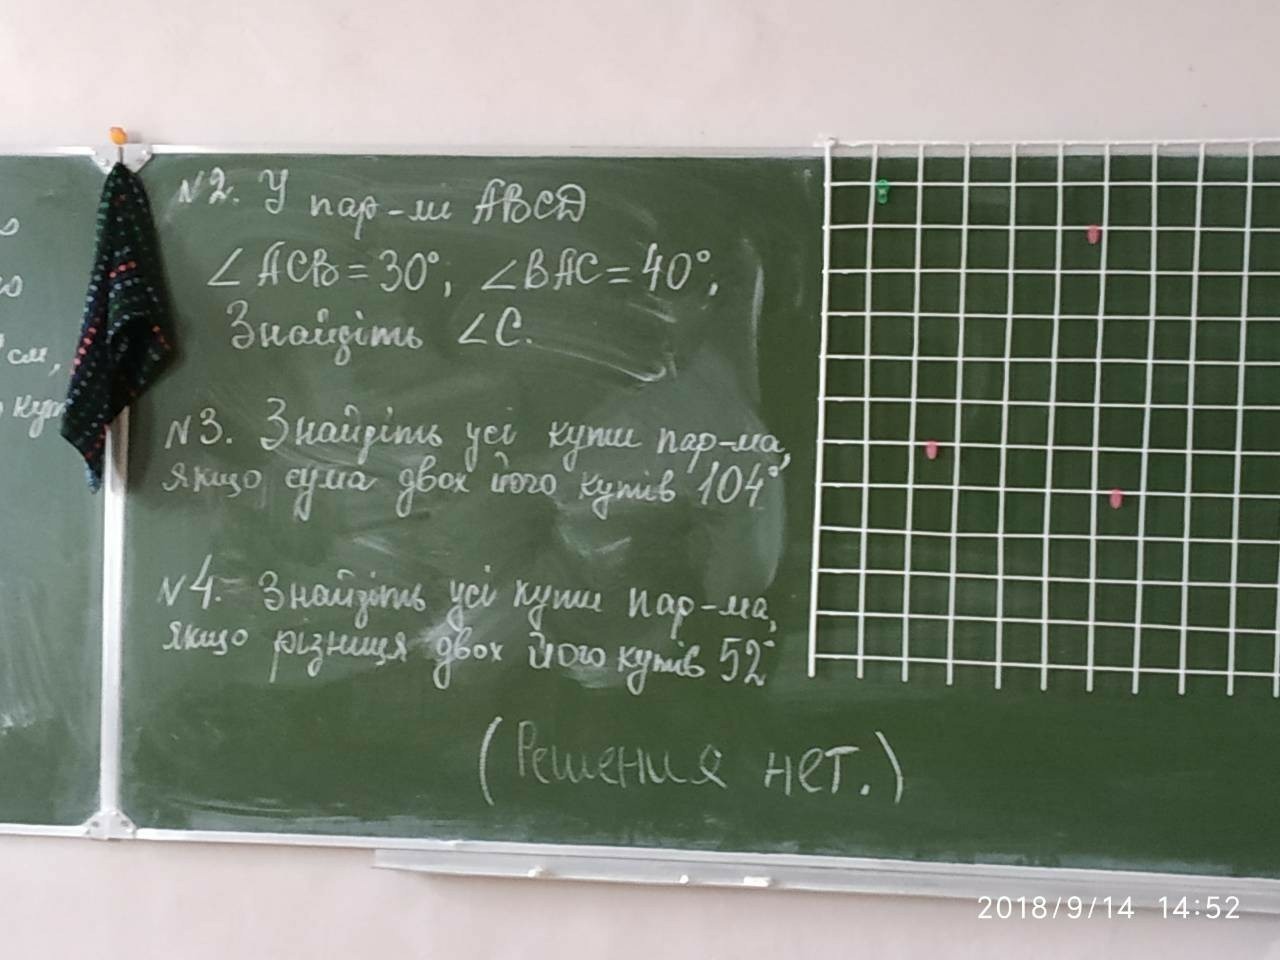 о
о
см,
кут
№2. У пар-мі ABCD
∠ACB = 30°, ∠BAC = 40°,
Знайдіть ∠C.
№3. Знайдіть усі кути пар-ма,
якщо сума двох його кутів 104°
№4. Знайдіть усі кути пар-ма,
якщо різниця двох його кутів 52°
(Решения нет.)
2018/9/14 14:52